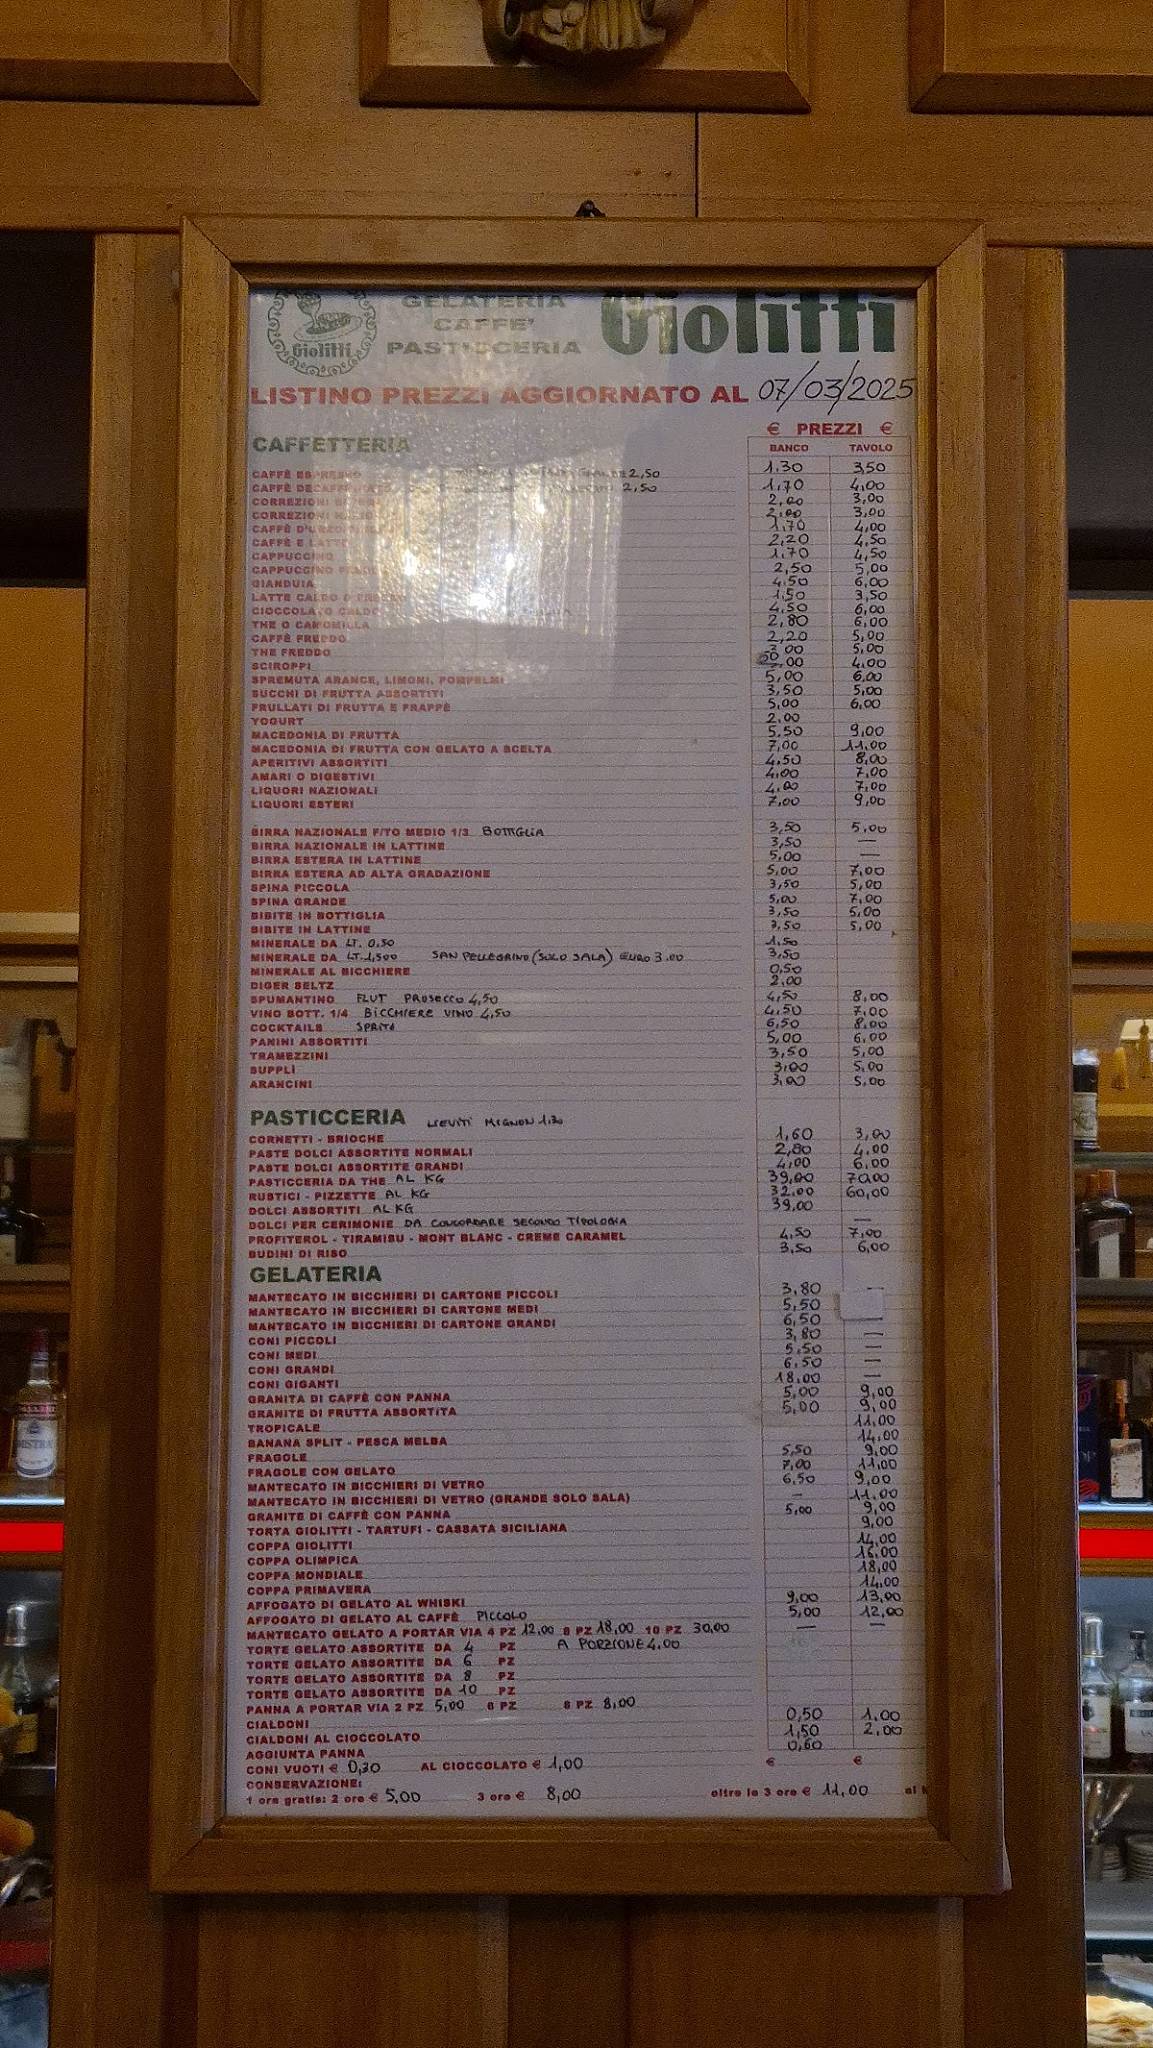 GELATERIA
CAFFE'
PASTICCERIA
Giolitti
Giolitti
LISTINO PREZZI AGGIORNATO AL 07/03/2025
€ PREZZI €
CAFFETTERIA BANCO TAVOLO
CAFFÈ ESPRESSO 2,50 1.30 3,50
CAFFÈ DECAFFEINATO 2,50 1,70 4,00
CORREZIONI 2,00 3,00
CORREZIONI 2,00 3,00
CAFFÈ D'ORZO 1,70 4,00
CAFFÈ E LATTE 2,20 4,50
CAPPUCCINO 1,70 4,50
CAPPUCCINO FREDDO 2,50 5,00
GIANDUIA 4,50 6,00
LATTE CALDO O FREDDO 1,50 3,50
CIOCCOLATO CALDO 4,50 6,00
THE O CAMOMILLA 2,80 6,00
CAFFÈ FREDDO 2,20 5,00
THE FREDDO 3,00 5,00
SCIROPPI 4,00
SPREMUTA ARANCE, LIMONI, POMPELMI 5,00 6,00
SUCCHI DI FRUTTA ASSORTITI 3,50 5,00
FRULLATI DI FRUTTA E FRAPPÈ 5,00 6,00
YOGURT 2,00
MACEDONIA DI FRUTTA 5.50 9,00
MACEDONIA DI FRUTTA CON GELATO A SCELTA 7,00 11,00
APERITIVI ASSORTITI 4,50 8,00
AMARI O DIGESTIVI 4,00 7,00
LIQUORI NAZIONALI 4,00 7,00
LIQUORI ESTERI 7,00 9,00
BIRRA NAZIONALE F/TO MEDIO 1/3 BOTTIGLIA 3,50 5,00
BIRRA NAZIONALE IN LATTINE 3,50 —
BIRRA ESTERA IN LATTINE 5,00 —
BIRRA ESTERA AD ALTA GRADAZIONE 5,00 7,00
SPINA PICCOLA 3,50 5,00
SPINA GRANDE 5,00 7,00
BIBITE IN BOTTIGLIA 3,50 5,00
BIBITE IN LATTINE 3,50 5,00
MINERALE DA LT. 0,50 1.50
MINERALE DA LT.1,500 SAN PELLEGRINO (SOLO SALA) EURO 3.00 3,50
MINERALE AL BICCHIERE 0,50
DIGER SELTZ 2.00
SPUMANTINO FLUT PROSECCO 4,50 4,50 8,00
VINO BOTT. 1/4 BICCHIERE VINO 4,50 4.50 7,00
COCKTAILS SPRITZ 6,50 8,00
PANINI ASSORTITI 5,00 6,00
TRAMEZZINI 3,50 5,00
SUPPLÌ 3,00 5,00
ARANCINI 3,00 5,00
PASTICCERIA LIEVITI MIGNON 1.30
CORNETTI - BRIOCHE 1,60 3,00
PASTE DOLCI ASSORTITE NORMALI 2,80 4,00
PASTE DOLCI ASSORTITE GRANDI 4,00 6,00
PASTICCERIA DA THE AL KG 39,00 70,00
RUSTICI - PIZZETTE AL KG 32,00 60,00
DOLCI ASSORTITI AL KG 39,00
DOLCI PER CERIMONIE DA CONCORDARE SECONDO TIPOLOGIA —
PROFITEROL - TIRAMISU - MONT BLANC - CREME CARAMEL 4,50 7,00
BUDINI DI RISO 3,50 6,00
GELATERIA
MANTECATO IN BICCHIERI DI CARTONE PICCOLI 3,80 —
MANTECATO IN BICCHIERI DI CARTONE MEDI 5,50
MANTECATO IN BICCHIERI DI CARTONE GRANDI 6,50 —
CONI PICCOLI 3,80 —
CONI MEDI 5.50 —
CONI GRANDI 6.50 —
CONI GIGANTI 18,00 —
GRANITA DI CAFFÈ CON PANNA 5,00 9,00
GRANITE DI FRUTTA ASSORTITA 5,00 9,00
TROPICALE 11,00
BANANA SPLIT - PESCA MELBA 14,00
FRAGOLE 5,50 9,00
FRAGOLE CON GELATO 7,00 11,00
MANTECATO IN BICCHIERI DI VETRO 6.50 9,00
MANTECATO IN BICCHIERI DI VETRO (GRANDE SOLO SALA) — 11,00
GRANITE DI CAFFÈ CON PANNA 5,00 9,00
TORTA GIOLITTI - TARTUFI - CASSATA SICILIANA 9,00
COPPA GIOLITTI 14,00
COPPA OLIMPICA 16,00
COPPA MONDIALE 18,00
COPPA PRIMAVERA 14,00
AFFOGATO DI GELATO AL WHISKI 9,00 13,00
AFFOGATO DI GELATO AL CAFFÈ PICCOLO 5,00 12,00
MANTECATO GELATO A PORTAR VIA 4 PZ 12,00 8 PZ 18,00 10 PZ 30,00 — —
TORTE GELATO ASSORTITE DA 4 PZ A PORZIONE 4.00
TORTE GELATO ASSORTITE DA 6 PZ
TORTE GELATO ASSORTITE DA 8 PZ
TORTE GELATO ASSORTITE DA 10 PZ
PANNA A PORTAR VIA 2 PZ 5,00 6 PZ 8 PZ 8,00
CIALDONI 0,50 1.00
CIALDONI AL CIOCCOLATO 1,50 2,00
AGGIUNTA PANNA 0,60
CONI VUOTI € 0,30 AL CIOCCOLATO € 1,00 € €
CONSERVAZIONE:
1 ora gratis: 2 ore € 5,00 3 ore € 8,00 oltre le 3 ore € 11,00